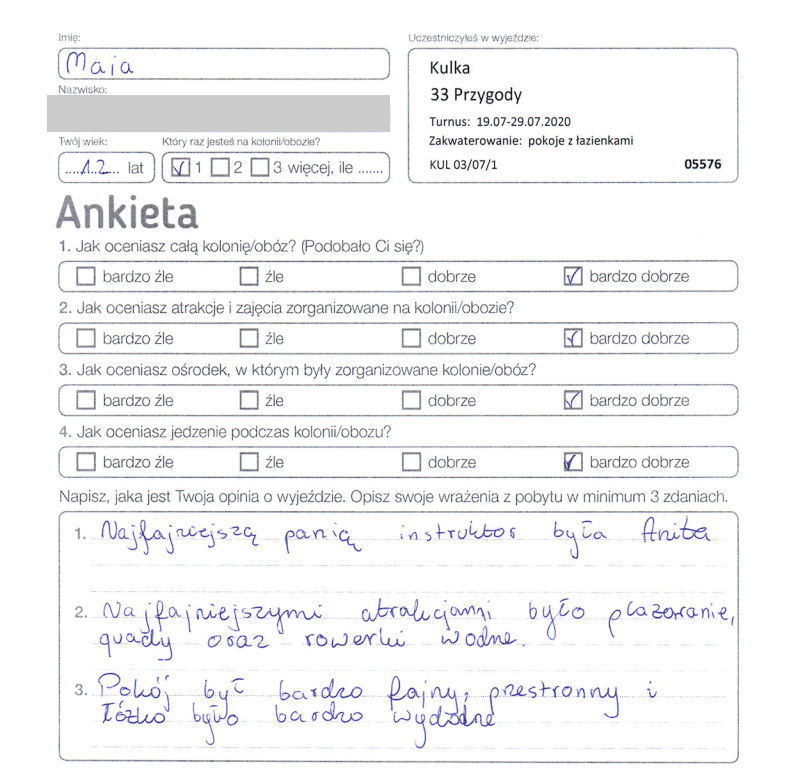 Imię:
Maja
Uczestniczyłeś w wyjeździe:
Kulka
33 Przygody
Turnus: 19.07-29.07.2020
Zakwaterowanie: pokoje z łazienkami
KUL 03/07/1 05576
Nazwisko:
Twój wiek:
....12.... lat
Który raz jesteś na kolonii/obozie?
1 2 3 więcej, ile .......
Ankieta
1. Jak oceniasz całą kolonię/obóz? (Podobało Ci się?)
bardzo źle źle dobrze bardzo dobrze
2. Jak oceniasz atrakcje i zajęcia zorganizowane na kolonii/obozie?
bardzo źle źle dobrze bardzo dobrze
3. Jak oceniasz ośrodek, w którym były zorganizowane kolonie/obóz?
bardzo źle źle dobrze bardzo dobrze
4. Jak oceniasz jedzenie podczas kolonii/obozu?
bardzo źle źle dobrze bardzo dobrze
Napisz, jaka jest Twoja opinia o wyjeździe. Opisz swoje wrażenia z pobytu w minimum 3 zdaniach.
1. Najfajniejszą panią instruktor była Anita
2. Najfajniejszymi atrakcjami było plażowanie,
quady oraz rowerki wodne.
3. Pokój był bardzo fajny, przestronny i
łóżko było bardzo